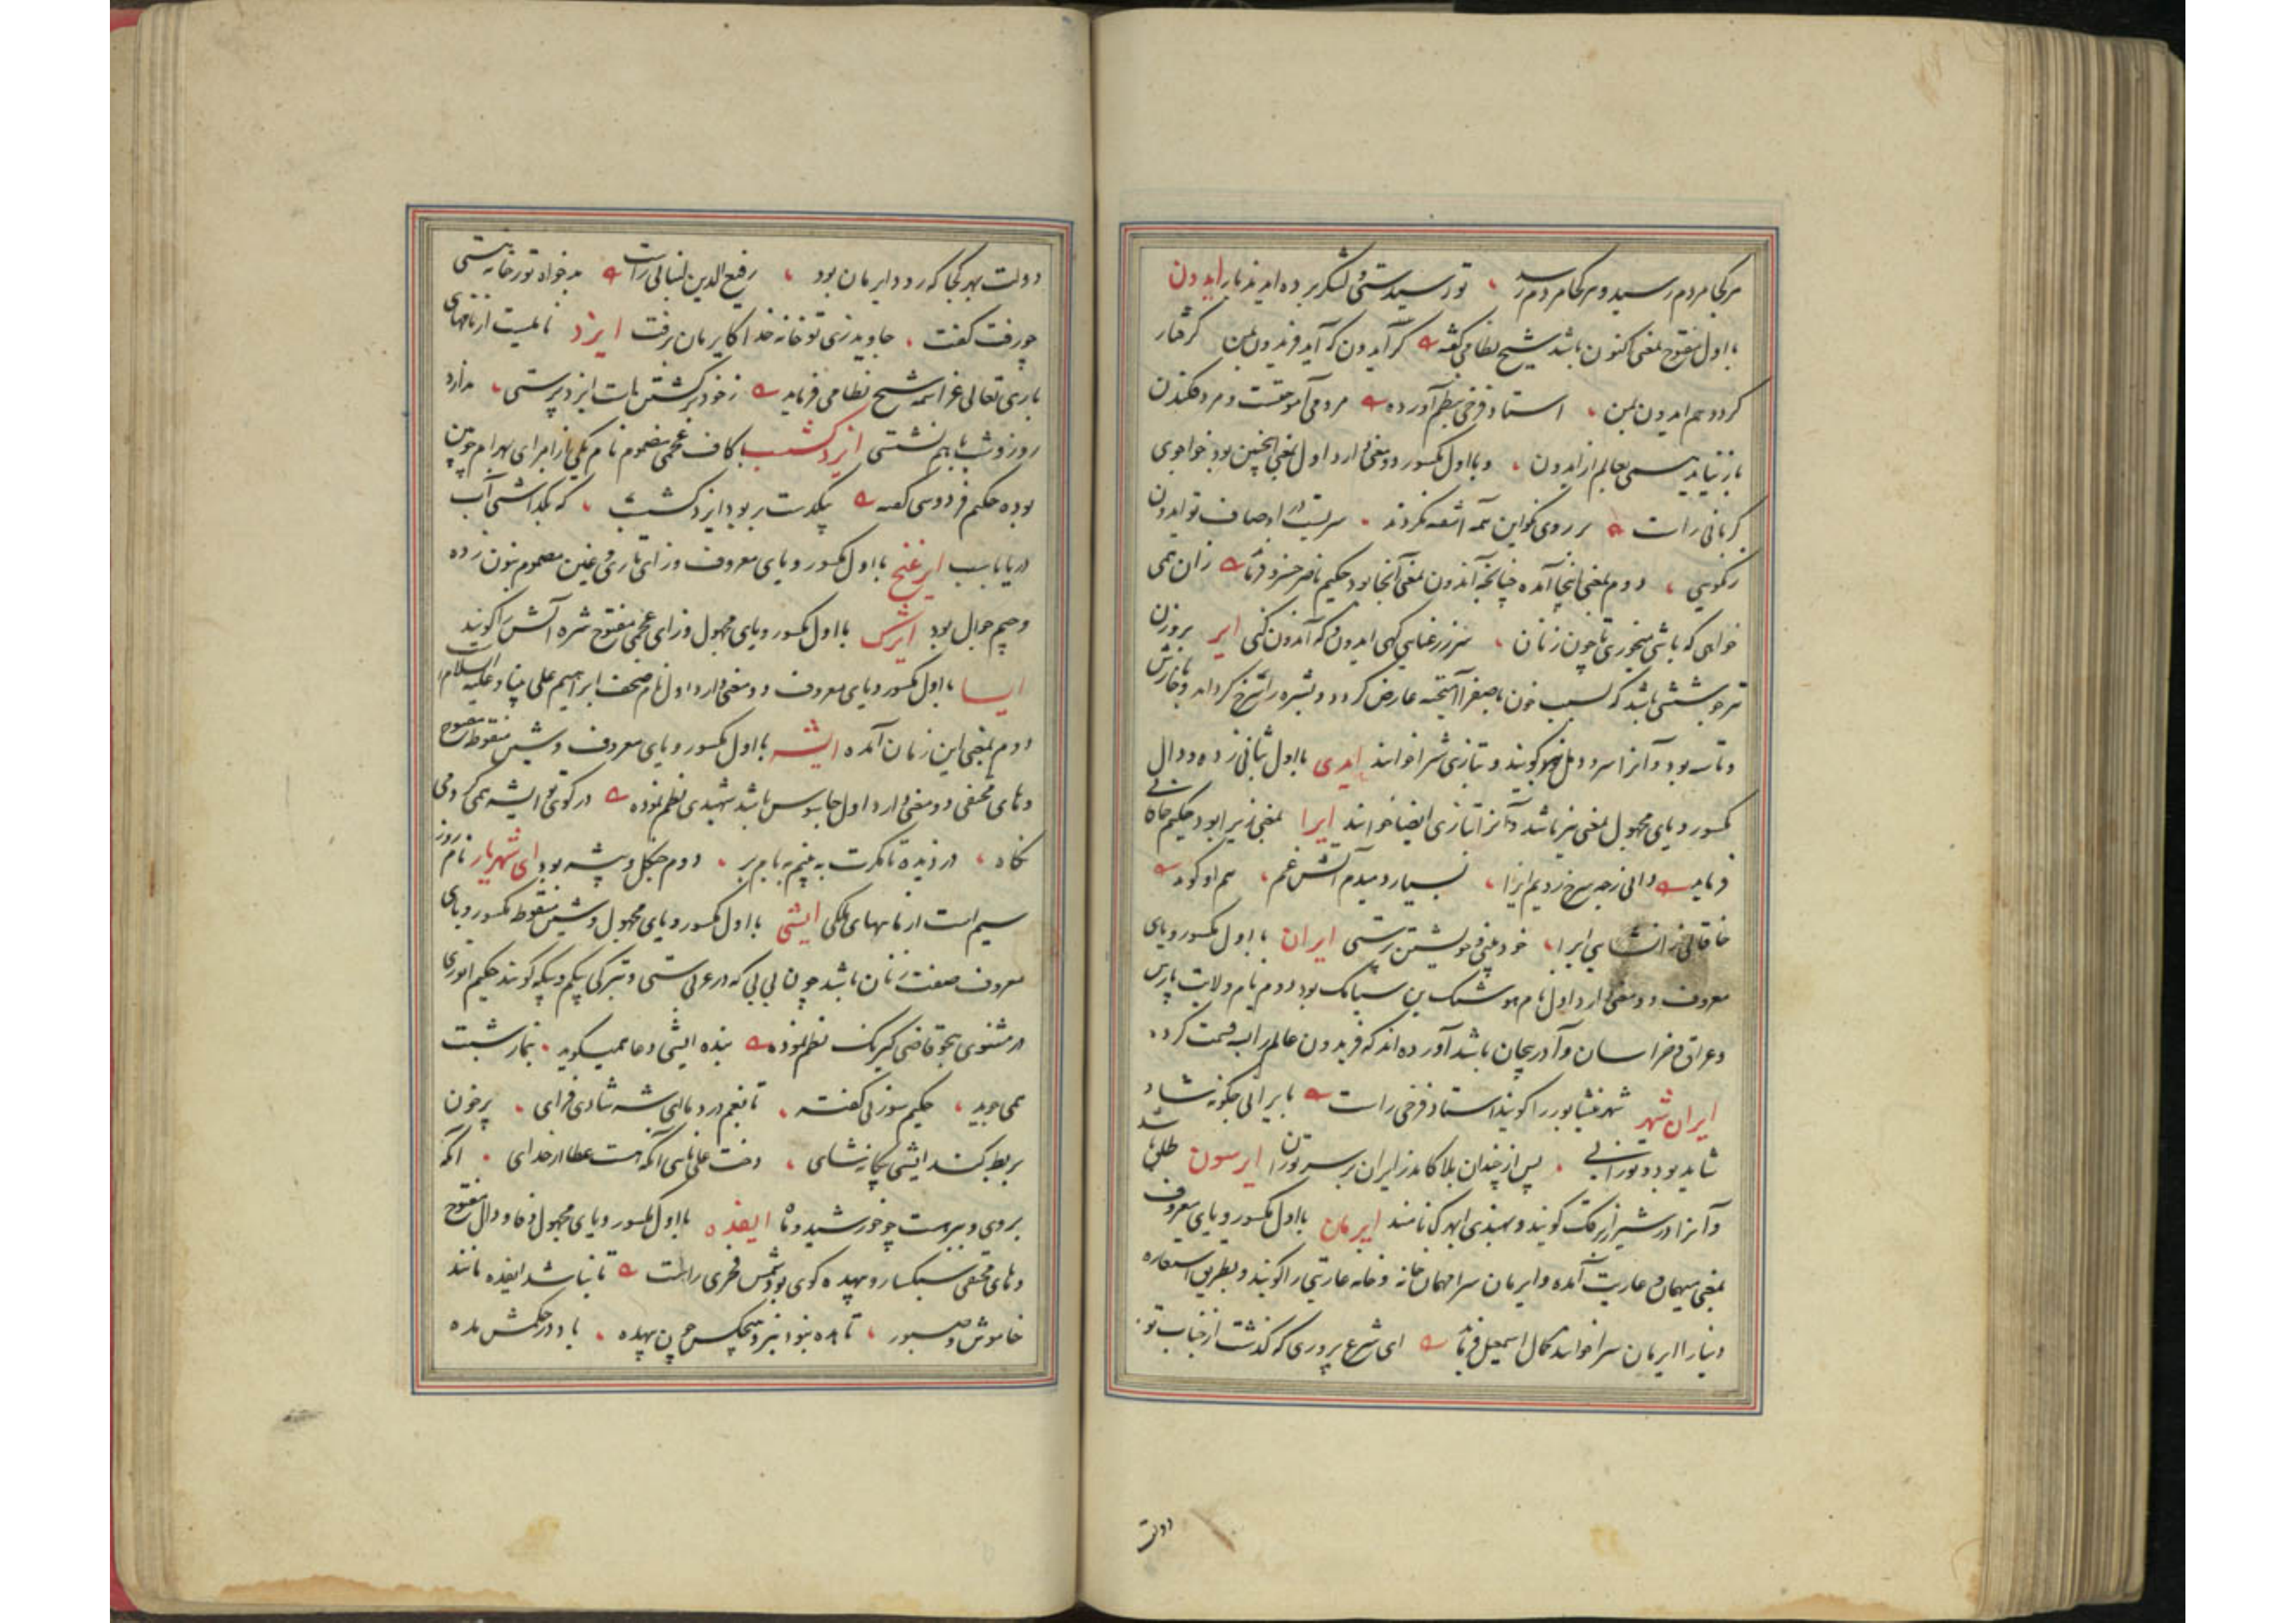 هر کجا مردم رسید و هر کجا مردم رسد ، تو رسیدستی و لشکر برده اید بار ایدون
با اول مفتوح بمعنی کنون باشد شیخ نظامی گفته گر آیدون که آید فریدون بمن گرفتار
گردد هم ایدون بمن ، استاد فرخی بنظم آورده مردمی آموختست و مرد فکندن
باز نیاید کسی بعالم از ایدون ، و با اول مکسور دو معنی دارد اول بمعنی اینچنین بود خواجوی
کرمانی راست بر روی نکو این همه آشفته نگردند ، سریست در اوصاف تو ایدون
نکویی ، دوم بمعنی اینجا آمده چنانچه آندون بمعنی آنجا بود حکیم ناصر خسرو فرماید زان همی
خواهی که باشی میخوری تا چون زنان ، سرزرعنایی گهی ایدون و گه آندون کنی ایر بروزن
تیر جوششی باشد که بسبب خون با صفرا آمیخته عارض گردد و بشره را سرخ گرداند و با خارش
و تاسه بود و آنرا سرود هل نیز گویند و بتازی شرا خوانند ایدی با اول بثانی زده و دال
مکسور و یای مجهول بمعنی نیز باشد و آنرا بتازی ایضا خوانند ایرا بمعنی زیرا بود حکیم خاقانی
فرماید دانی ز چه سرخ رویم ایرا ، بسیار دمیدم آتش غم ، هم او گوید
خاقانی از انشایی ایرا ، خود بینی و خویشتن پرستی ایران با اول مکسور و یای
معروف دو معنی دارد اول نام هوشنگ بن سیامک بود دوم نام ولایت پارس
و عراق و خراسان و آذربیجان باشد آورده اند که فریدون عالم را سه قسمت کرده
ایران شهر شهر نیشابور را گویند استاد فرخی راست بایرانی چگونه شاد
شاید بود تورانی ، پس از چندان بلا کامد ز ایران بر سر توران ایرسون طلق باشد
و آنرا در شیراز زرنگ گویند و بهندی ابهرک نامند ایرمان با اول مکسور و یای معروف
بمعنی میهمان و عاریت آمده و ایرمان سرا مهمان خانه و خانه عاریتی را گویند و بطریق استعاره
دنیا را ایرمان سرا خوانند کمال اسمعیل فرماید ای شرع پروری که گذشت از جناب تو
دولت
دولت بهر کجا که رود ایرمان بود ، رفیع الدین لنبانی راست بدخواه تو رخانه هستی
چو رفت گفت ، جاوید زی تو خانه خدا کایرمان برفت ایزد نامیست از نامهای
باری تعالی عز اسمه شیخ نظامی فرماید ز خود برگشتن هات ایزد پرستی ، ندارد
روز و شب با هم نشستی ایزد گشسب با کاف عجمی مضموم نام یکی از امرای بهرام چوبین
بوده حکیم فردوسی گفته بیکدست بر بود ایزد گشسب ، که بگذاشتی آب
دریا باسب ایرغنج با اول مکسور و یای معروف و زای تازی و غین مضموم بنون زده
و جیم جوال بود ایژک با اول مکسور و یای مجهول و زای عجمی مفتوح شره آتش را گویند
ایسا با اول مکسور و یای معروف دو معنی دارد اول نام صحف ابراهیم علی نبینا و علیه السلام
دوم بمعنی این زمان آمده ایشه با اول مکسور و یای معروف و شین منقوط مفتوح
و های مختفی دو معنی دارد اول جاسوس باشد شهیدی نظم نموده در کوی تو ایشه همی گردم
نگاه ، دزدیده تا مگرت به بینم به بام بر ، دوم جنگل و بیشه بود ای شهریار نام روز
سیم است از ماههای ملکی ایشی با اول مکسور و یای مجهول و شین منقوط مکسور و یای
معروف صفت زنان باشد چون بی بی که در عربی ستی و بترکی بیگم و بیگه گویند حکیم انوری
در مثنوی هجو قاضی کیرنگ نظم نموده بنده ایشی دعا همیگوید ، نماز شبت
همی جوید ، حکیم سوزنی گفته ، تا نغم درد مانی بشه شادی فزای ، پر خون
بربط کند ایشی نشای ، دخت علی آنکه هست عطا از خدای ، آنکه
بروی و ببرهست چو خورشید و ماه ایفده با اول مکسور و یای مجهول و فا و دال مفتوح
و های مختفی سبکسار و بیهده گوی بود شمس فخری راست تا نباشد ایفده مانند
خاموش و صبور ، تا بده نبود بنزد هیچکس چون بیهده ، باد در حکمش بده